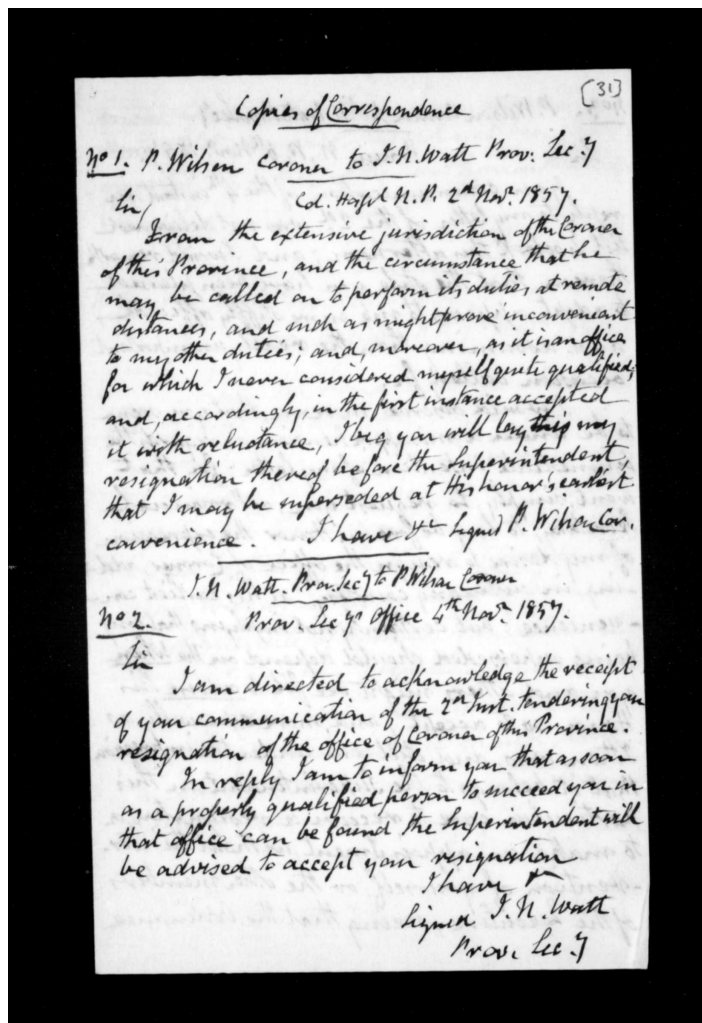 [31]
Copies of Correspondence
No 1. P. Wilson Coroner to I. N. Watt Prov: Sec.y
Col. Hospl N. P. 2nd Novr. 1857.
Sir/
From the extensive jurisdiction of the Coroner
of this Province, and the circumstance that he
may be called on to perform its duties at remote
distances, and such as might prove inconvenient
to my other duties; and, moreover, as it is an office
for which I never considered myself quite qualified;
and, accordingly, in the first instance accepted
it with reluctance, I beg you will lay this my
resignation thereof before the Superintendent,
that I may be superseded at His honor's earliest
convenience. I have &c Signed P. Wilson Cor.
I. N. Watt. Prov. Sec.y to P Wilson Coroner
No 2. Prov. Sec.y's Office 4th Novr. 1857.
Sir
I am directed to acknowledge the receipt
of your communication of the 2nd Inst. tendering your
resignation of the office of Coroner of this Province.
In reply I am to inform you that as soon
as a properly qualified person to succeed you in
that office can be found the Superintendent will
be advised to accept your resignation
I have &c
Signed I. N. Watt
Prov. Sec.y